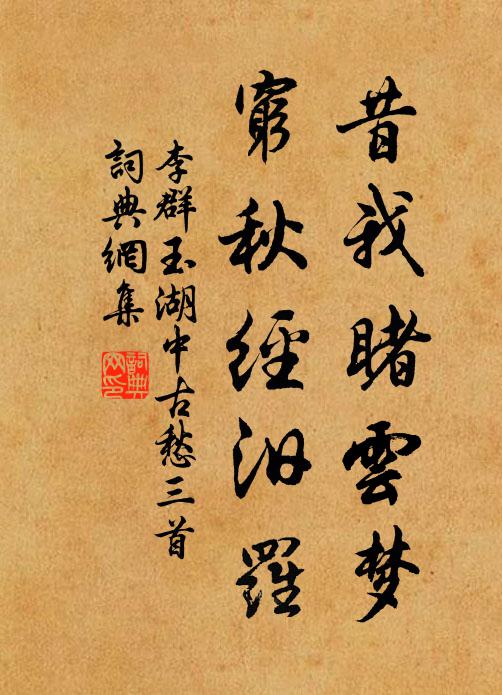 昔我睹雲梦
窮秋經汨羅
李群玉湖中古愁三首
詞典網集
詞典
网印